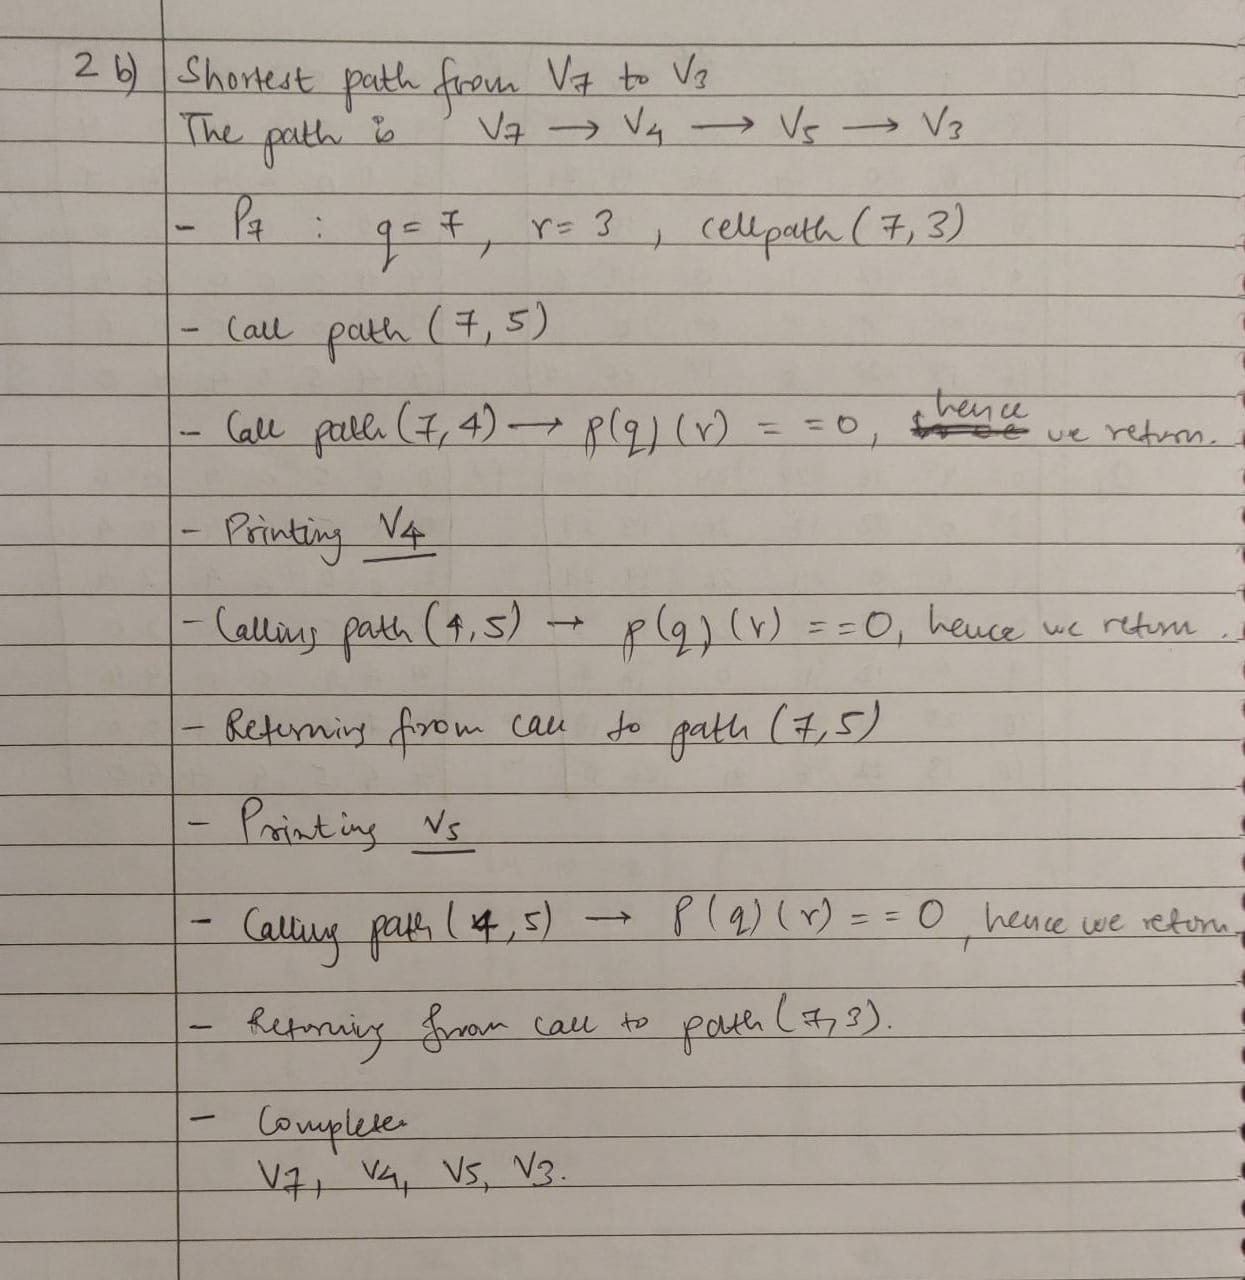 2 b) Shortest path from V7 to V3
The path is V7 → V4 → V5 → V3
- P7 : q = 7, r = 3, cellpath (7, 3)
- Call path (7, 5)
- Call path (7, 4) → p(q)(r) = = 0, hence we return.
- Printing V4
- Calling path (4, 5) → p(q)(r) = = 0, hence we return.
- Returning from call to path (7,5)
- Printing V5
- Calling path (4, 5) → P(q)(r) = = 0, hence we return
- Returning from call to path (7, 3).
- Complete
V7, V4, V5, V3.